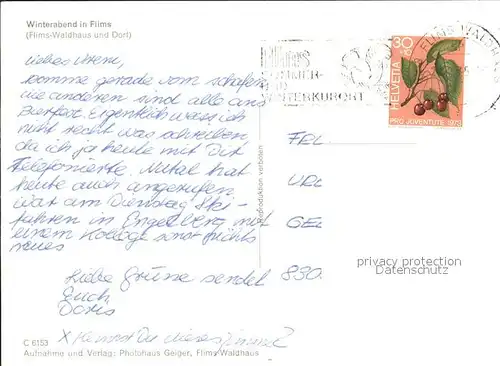 Winterabend in Flims
(Flims-Waldhaus und Dorf)
Liebes Vreni,
komme gerade vom schafen
die anderen sind alle ans
Eigentlich weiss ich
nicht recht was schreiben
da ich ja heute mit Dir
Telefonierte. hat
heute auch angerufen
war am Dienstag Ski-
fahren in Engelberg mit
einem Kollege sonst nichts
neues
Liebe Grüsse sendet
Euch
Doris
X Kennst Du dieses
C 6153
Aufnahme und Verlag: Photohaus Geiger, Flims-Waldhaus
Reproduktion verboten
flims
WINTERKURORT
FLIMS WALDHAUS
30
+10
HELVETIA
PRO JUVENTUTE 1973
FEL
URL
GEL
830.
privacy protection
Datenschutz